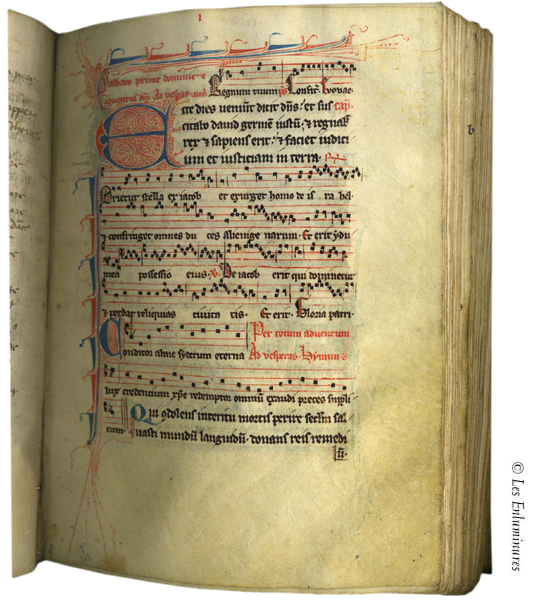 Sabbato prime dominice
aduentus dñi. Ad vesperas. añ. Regnum tuum ps Confiteb. Nouae
Ecce dies veniũt dicit dñs: et sus cap.
citabo dauid germẽ iustũ: & regnabit
rex & sapiens erit: & faciet iudici
um et iusticiam in terra.
Orietur stella ex iacob et exurget homo de is ra hel
& confringet omnes du ces alienige narum. Et erit
possessio eius. De iacob erit qui dominetur
& perdat reliquias ciuita tis. Et erit. Gloria patri
Per totum aduentum
Conditor alme syderum eterna Ad vesperas. Hymnus
lux credencium xp̃e redemptor omniũ exaudi preces suppli
cum Qui condolens interitu mortis perire sec̃lm sal
uasti mundũ languidũ. donans reis remedi
ũ.
© Les Enluminures